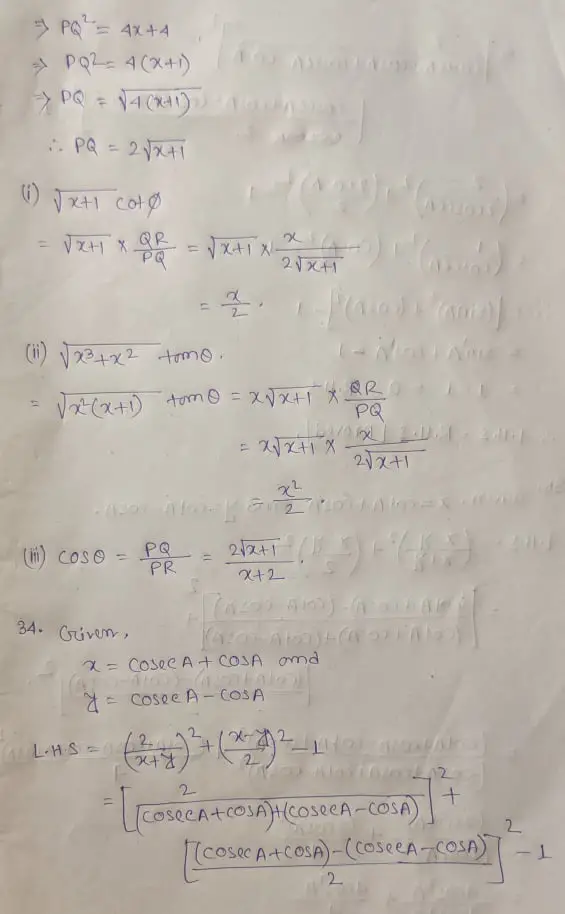 ⇒ PQ² = 4x+4
⇒ PQ² = 4(x+1)
⇒ PQ = √4(x+1)
∴ PQ = 2√x+1
(i) √x+1 cotϕ
= √x+1 × QR/PQ = √x+1 × x/2√x+1
= x/2.
(ii) √x³+x² tanθ.
= √x²(x+1) tanθ = x√x+1 × QR/PQ
= x√x+1 × x/2√x+1
= x²/2.
(iii) cosθ = PQ/PR = 2√x+1/x+2.
34. Given,
x = cosecA + cosA and
y = cosecA - cosA
L.H.S = (2/x+y)² + (x-y/2)² - 1
= [2/(cosecA+cosA)+(cosecA-cosA)]² +
[(cosecA+cosA)-(cosecA-cosA)/2]² - 1